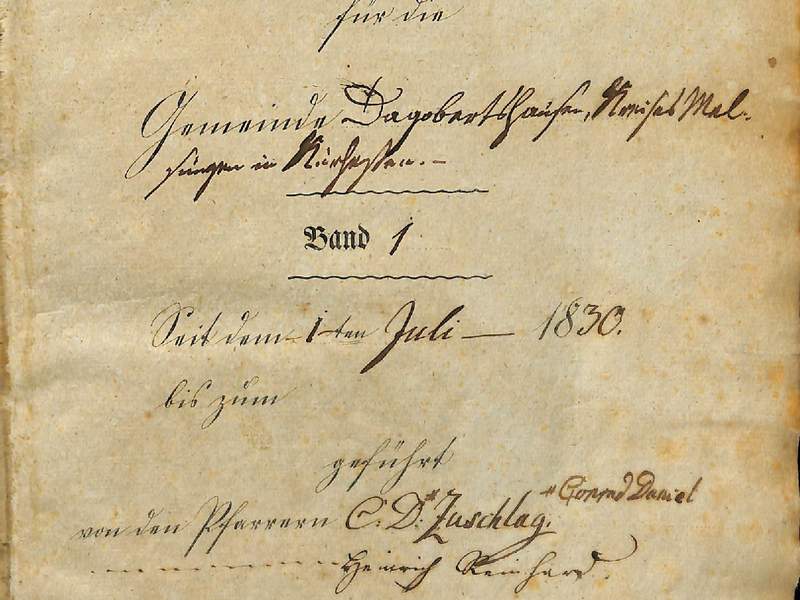 für die
Gemeinde Dagobertshausen, Kreises Mel-
sungen in Kurhessen.-
Band 1
Seit dem 1ten Juli — 1830.
bis zum
geführt
# Conrad Daniel
von den Pfarrern C. D.# Zuschlag.
Heinrich Reinhard.